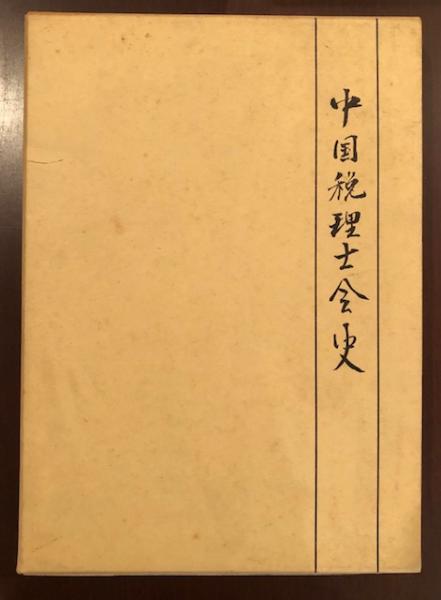 中国税理士会史